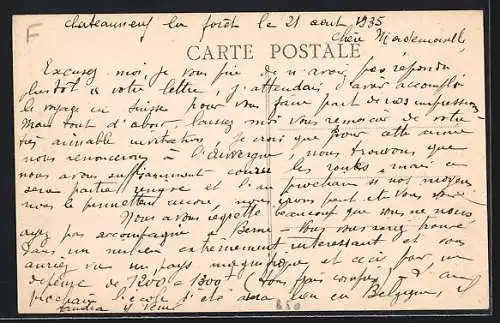 F
Chateauneuf en forêt le 21 aout 1935
Chère Mademoiselle,
CARTE POSTALE
Excusez moi je vous prie de n'avoir pas répondu
plustôt a votre lettre, j'attendais d'avoir accompli
le voyage en Suisse pour vous faire part de nos impressions
Mais tout d'abord, laissez moi vous remercier de votre
très aimable invitation. Je crois que pour cette année
nous renoncerons à l'Auvergne, nous trouvons que
nous avons suffisamment couru les routes, mais ce
sera partie remise et l'an prochain si nos moyens
nous le permettent encore, nous irons peut etre vous voir.
Nous avons regretté beaucoup que vous ne nous
ayez pas accompagné à Berne - Vous vous seriez trouvée
dans un milieu extrêmement interessant et vous
auriez vu un pays magnifique et ceci par un
dépense de 1200 à 1300f (tous frais compris) - L'an
prochain l'école d'été aura lieu en Belgique, il
faudra y venir